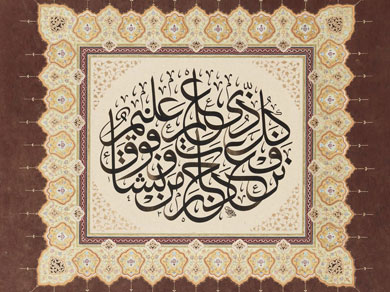 نرفع درجات من نشاء وفوق كل ذي علم عليم